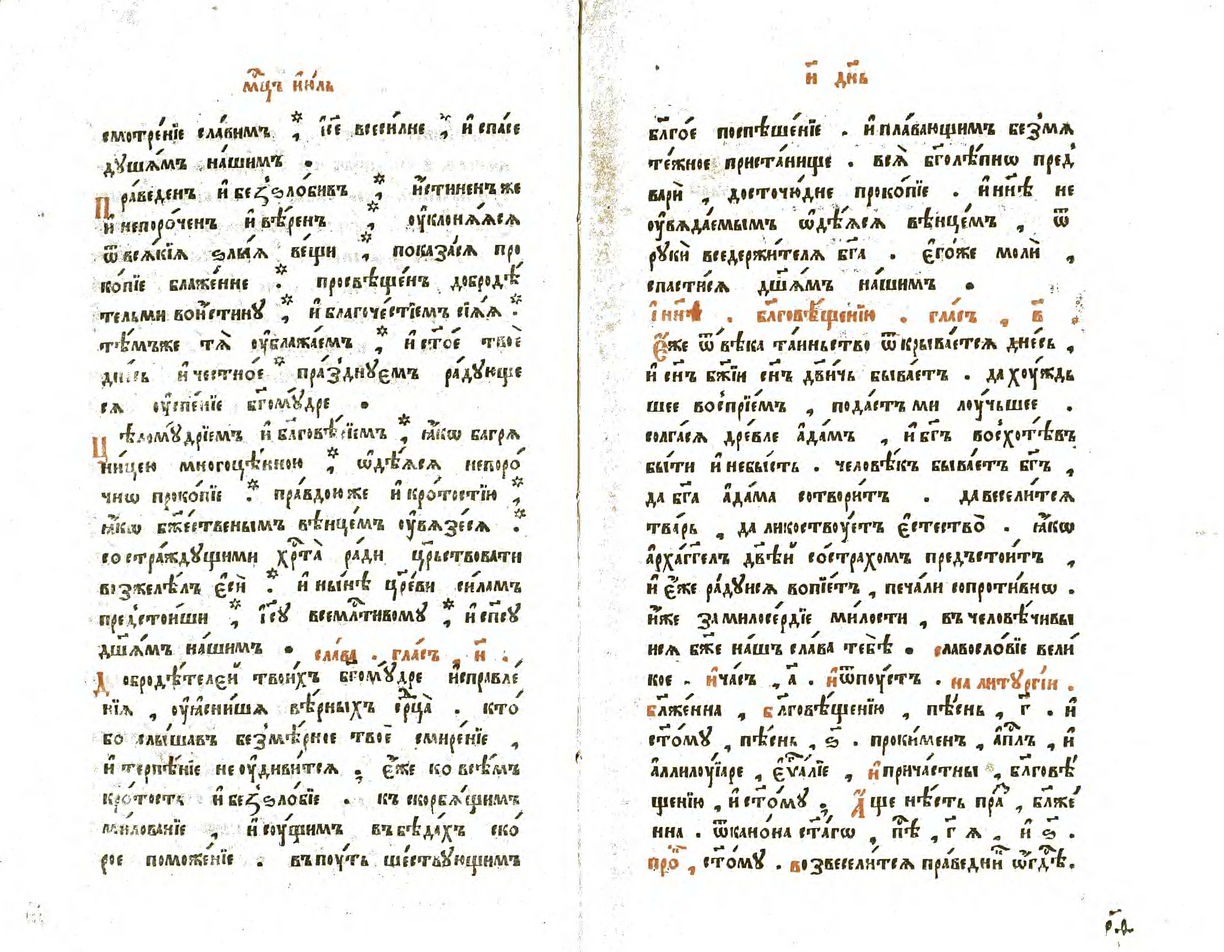 мⷭ҇цъ і҆ю́ль
смотре́нїе сла́вимъ * і҆и҃се всеси́лне * и҆ спа́се
дꙋша́мъ на́шимъ .
Пра́веденъ и҆ беззло́бивъ * и҆́стиненъ же
и҆ непоро́ченъ и҆ вѣ́ренъ * ᲂу҆клоня́ѧсѧ
ѿ всѧ́кїѧ ѕлы́ѧ ве́щи * показа́сѧ про
ко́пїе блаже́нне * просвѣще́нъ добродѣ́
тельми вои́стинꙋ * и҆ благоче́стїемъ сїѧ́ѧ *
тѣ́мъже тѧ̀ ᲂу҆блажа́емъ * и҆ ст҃о́е твоѐ
дне́сь и҆ честно́е * пра́зднꙋемъ ра́дꙋюще
сѧ ᲂу҆спе́нїе бг҃омꙋ́дре .
Цѣломꙋ́дрїемъ и҆ бл҃гове́рїемъ * ꙗ҆́кѡ багрѧ
ни́цею многоцѣ́нною * ѡ҆дѣ́ѧсѧ непоро́
чнѡ проко́пїе * пра́вдою же и҆ кро́тостїю *
ꙗ҆́кѡ бж҃е́ственымъ вѣнце́мъ ᲂу҆вѧзе́сѧ *
со стра́ждꙋщими хрⷭ҇та̀ ра́ди црⷭ҇твовати
возжелѣ́лъ є҆сѝ * и҆ ны́нѣ цр҃е́ви си́ламъ
предстои́ши * і҆и҃сꙋ всемлⷭ҇тивомꙋ * и҆ сп҃сꙋ
дш҃а́мъ на́шимъ . сла́ва . гла́съ , и҃ .
Добродѣ́телей твои́хъ бг҃омꙋ́дре и҆справле́
нїѧ , ᲂу҆ѧсни́шѧ вѣ́рныхъ срⷣца̀ . кто́
бо слы́шавъ безмѣ́рное твоѐ смире́нїе ,
и҆ терпѣ́нїе не ᲂу҆диви́тсѧ ; є҆́же ко всѣ́мъ
кро́тость и҆ беззло́бїе . къ скорбѧ́щимъ
милова́нїе , и҆ сꙋ́щимъ въ бѣда́хъ ско́
рое поможе́нїе . въ пꙋ́ть ше́ствꙋющимъ
и҃ дн҃ь
бл҃го́е поспѣше́нїе . и҆ пла́вающимъ безмѧ
те́жное приста́нище . всѧ̀ бг҃олѣ́пнѡ пред̾
варѝ , досточю́дне проко́пїе . и҆ нн҃ѣ не
ᲂу҆вѧда́емымъ ѡ҆дѣ́ѧсѧ вѣнце́мъ , ѿ
рꙋкѝ вседержи́телѧ бг҃а . є҆го́же молѝ ,
спасти́сѧ дш҃а́мъ на́шимъ .
и҆ нн҃ѣ . бл҃говѣ́щенїю . гла́съ , в҃ .
Є҆́же ѿ вѣ́ка та́иньство ѿкрыва́етсѧ дне́сь ,
и҆ сн҃ъ бж҃їи сн҃ъ дв҃и́чь быва́етъ . да хꙋ́ждь
шее воспрїе́мъ , пода́стъ ми лꙋ́чьшее .
солга́сѧ дре́вле а҆да́мъ , и҆ бг҃ъ восхотѣ́въ
бы́ти и҆ небы́сть . человѣ́къ быва́етъ бг҃ъ ,
да бг҃а а҆да́ма сотвори́тъ . да весели́тсѧ
тва́рь , да ликоствꙋ́етъ є҆стество̀ . ꙗ҆́кѡ
а҆рха́гг҃елъ дв҃ѣ́й со стра́хомъ предъстои́тъ ,
и҆ є҆́же ра́дꙋисѧ вопїе́тъ , печа́ли сопроти́внѡ .
и҆́же за милосе́рдїе ми́лости , въ человѣ́чивы
исѧ бж҃е на́шъ сла́ва тебѣ̀ . славосло́вїе вели́
кое . и҆ ча́съ , а҃ . и҆ ѿпꙋ́стъ . на литꙋргі́и .
бл҃же́нна , бл҃говѣ́щенїю , пѣ́снь , г҃ . и҆
ст҃о́мꙋ , пѣ́снь , ѕ҃ . проки́менъ , а҆пⷭ҇лъ , и҆
а҆ллилꙋ́їаре , є҆ѵⷢ҇алїе , и҆ прича́стны , бл҃говѣ́
щенїю , и҆ ст҃о́мꙋ . А҆́ще нѣ́сть праⷥ , бл҃же́
нна . ѿ кано́на ст҃а́гѡ , пѣⷭ҇ , г҃ ѧ , и҆ ѕ҃ .
проⷦ , ст҃о́мꙋ . возвесели́тсѧ пра́веднїй ѡ҆ гдⷭ҇ѣ .